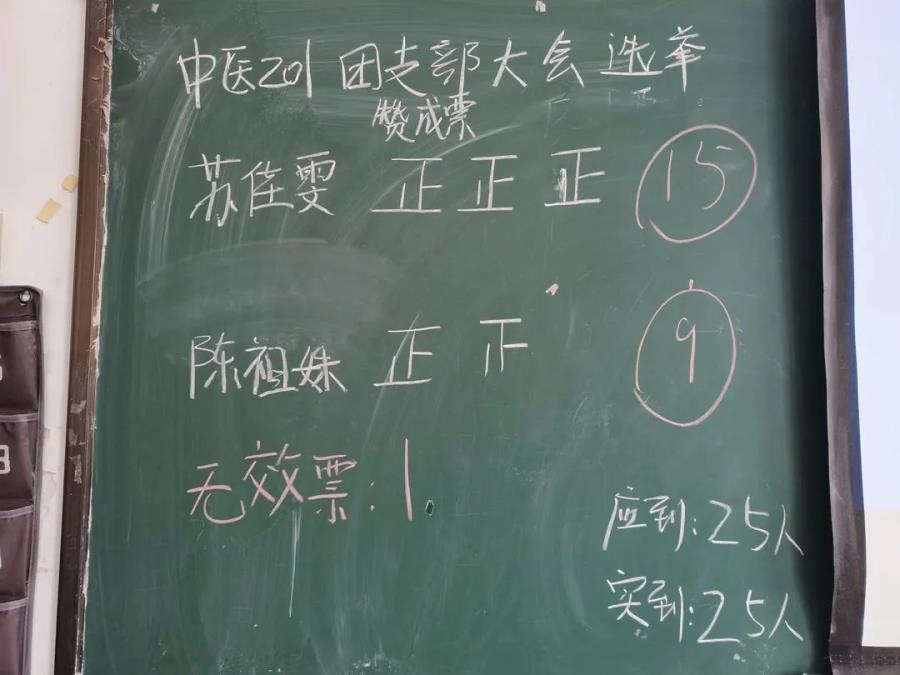 中医201团支部大会选举
赞成票
苏佳雯 正 正 正 15
陈祖妹 正 正 9
无效票:1.
应到:25人
实到:25人